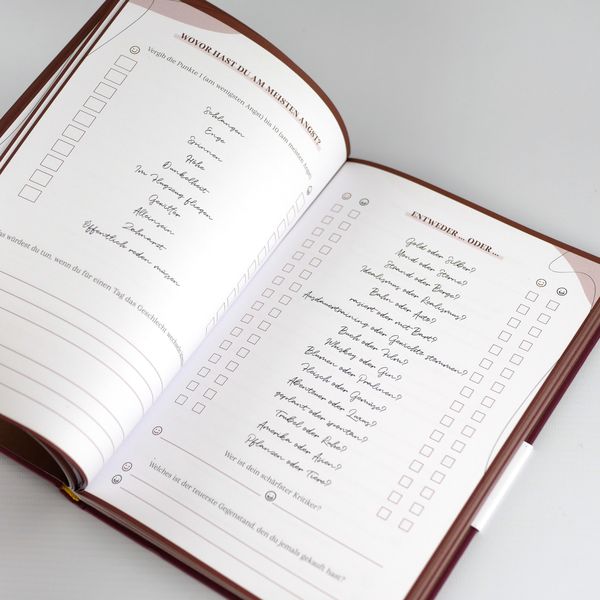 WOVOR HAST DU AM MEISTEN ANGST?
Vergib die Punkte 1 (am wenigsten Angst) bis 10 (am meisten Angst)
Schlangen
Enge
Spinnen
Höhe
Dunkelheit
Im Flugzeug fliegen
Gewitter
Alleinsein
Zahnarzt
Öffentlich reden müssen
würdest du tun, wenn du für einen Tag das Geschlecht
ENTWEDER ... ODER ...
Gold oder Silber?
Hund oder Sterne?
Strand oder Berge?
Idealismus oder Realismus?
Bahn oder Auto?
rasiert oder mit Bart?
Ausdauertraining oder Gewichte stemmen?
Buch oder Film?
Whiskey oder Gin?
Blumen oder Pralinen?
Fleisch oder Gemüse?
Abenteuer oder Luxus?
geplant oder spontan?
Trubel oder Ruhe?
Amerika oder Asien?
Pflanzen oder Tiere?
Wer ist dein schärfster Kritiker?
Welches ist der teuerste Gegenstand, den du jemals gekauft hast?